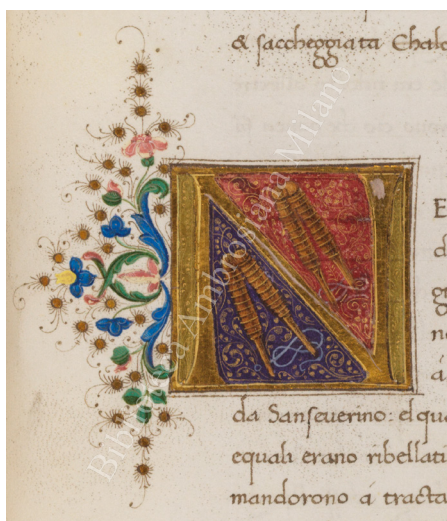 & saccheggiata Chalc
N
E
d
g
n
á
da Sanseuerino: el qu
equali erano ribellati
mandorono á tracta
Biblioteca Ambrosiana Milano